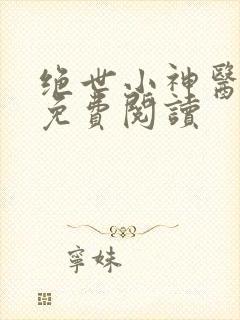 绝世小神醫
免費閱讀
寧妹